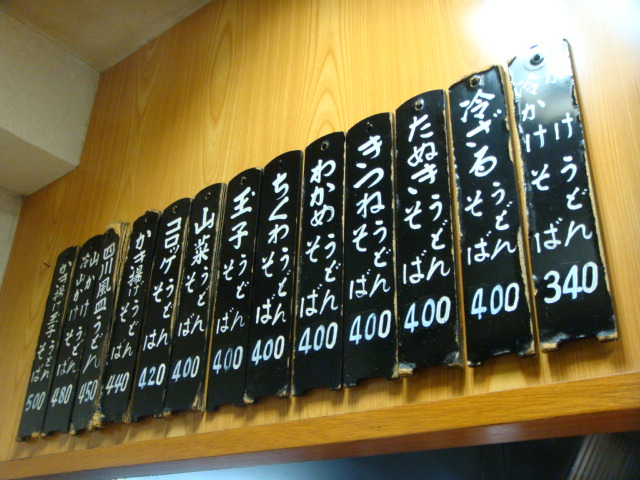 冷かけ うどん そば 340
冷ざる うどん そば 400
たぬき うどん そば 400
きつね うどん そば 400
わかめ うどん そば 400
ちくわ うどん そば 400
玉子 うどん そば 400
山菜 うどん そば 400
コロッケ うどん そば 420
かき揚 うどん そば 440
四川風皿うどん 450
山かけ 冷山かけ うどん そば 480
かき揚玉子 うどん そば 500